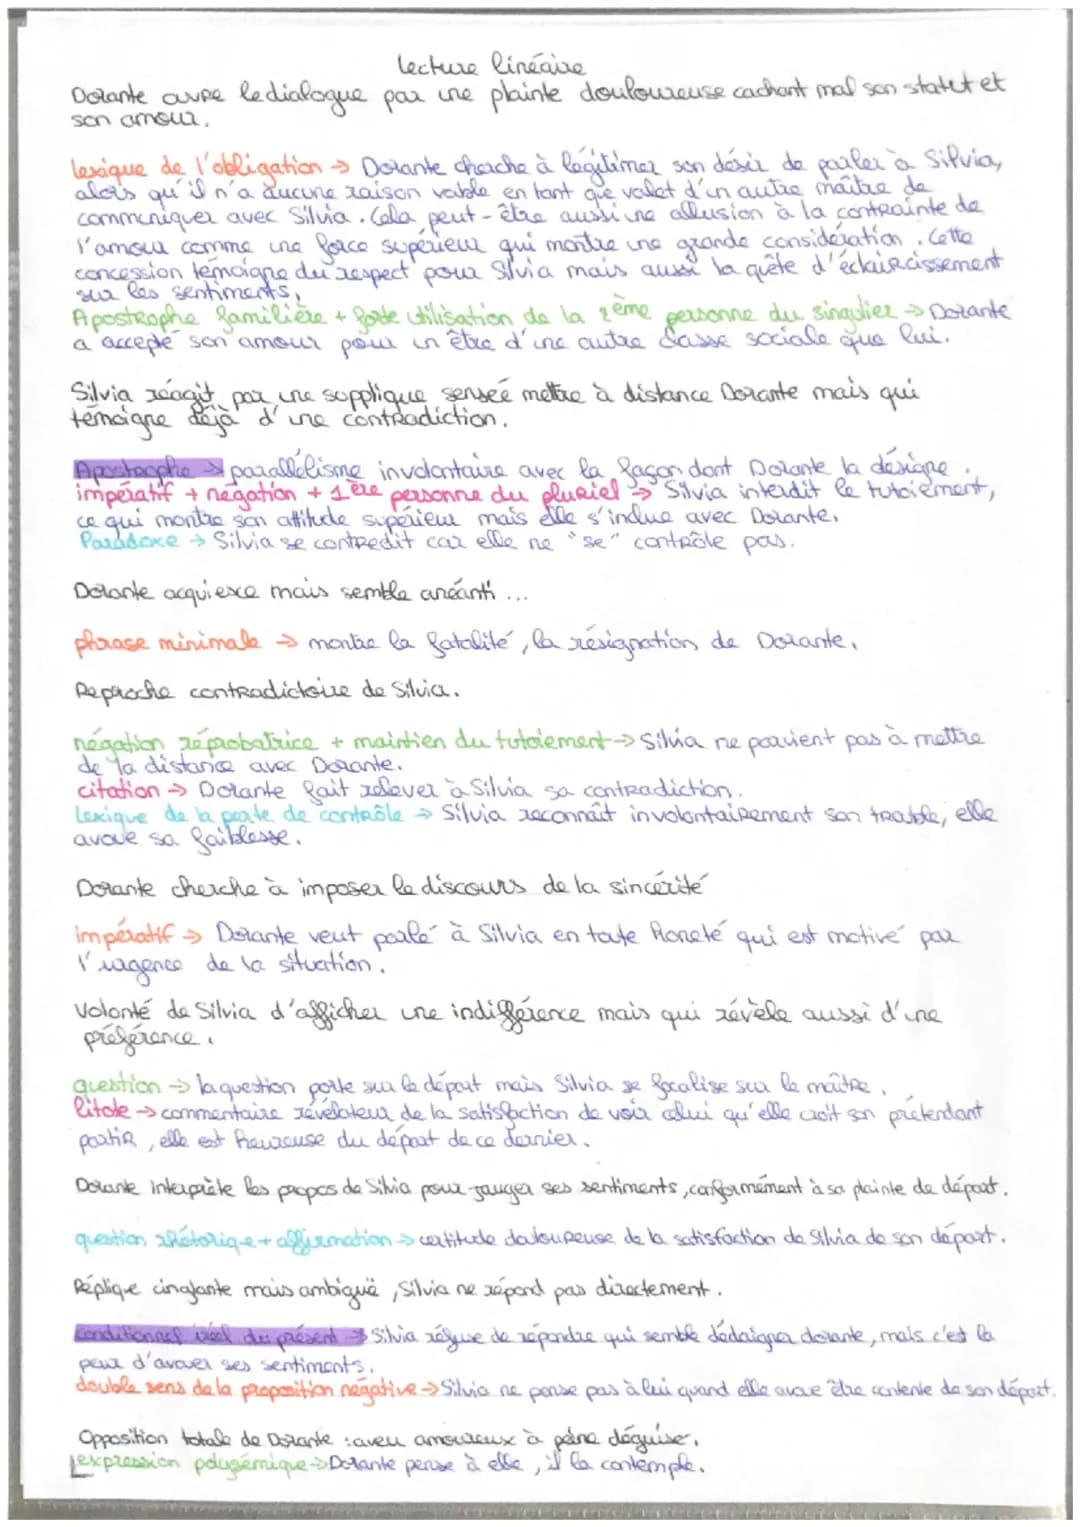 Lecture linéaire
Dorante ouvre le dialogue par une plainte douloureuse cachant mal son statut et
son amour.
lexique de l'obligation → Dorante cherche à légitimer son désir de parler à Silvia,
alors qu'il n'a aucune raison vable en tant que valet d'un autre maître de
communiquer avec Silvia. Cela peut-être aussi une allusion à la contrainte de
l'amour comme une force supérieur qui montre une grande considération. Cette
concession témoigne du respect pour Silvia mais aussi la quête d'éclaircissement
sur les sentiments,
Apostrophe familière + forte utilisation de la 2ème personne du singulier → Dorante
a accepté son amour pour un être d'une autre classe sociale que lui.
Silvia réagit par une supplique sensée mettre à distance Dorante mais qui
témoigne déjà d'une contradiction.
Apostrophe → parallélisme involontaire avec la façon dont Dorante la désigne.
impératif + négation + 1ère personne du pluriel → Silvia interdit le tutoiement,
ce qui montre son attitude supérieur mais elle s'inclue avec Dorante.
Paradoxe → Silvia se contredit car elle ne "se" contrôle pas.
Dorante acquiesce mais semble anéanti ...
phrase minimale → montre la fatalité, la résignation de Dorante.
Reproche contradictoire de Silvia.
négation réprobatrice + maintien du tutoiement → Silvia ne parvient pas à mettre
de la distance avec Dorante.
citation → Dorante fait relever à Silvia sa contradiction.
Lexique de la perte de contrôle → Silvia reconnaît involontairement son trouble, elle
avoue sa faiblesse.
Dorante cherche à imposer le discours de la sincérité
impératif → Dorante veut parlé à Silvia en toute honeté qui est motivé par
l'urgence de la situation.
Volonté de Silvia d'afficher une indifférence mais qui révèle aussi d'une
préférence.
question → la question porte sur le départ mais Silvia se focalise sur le maître.
litote → commentaire révélateur de la satisfaction de voir celui qu'elle croit son prétendant
partir, elle est heureuse du départ de ce dernier.
Dorante interprète les propos de Silvia pour jauger ses sentiments, conformément à sa plainte de départ.
question rhétorique + affirmation → certitude douloureuse de la satisfaction de Silvia de son départ.
Réplique cinglante mais ambiguë, Silvia ne répond pas directement.
Conditionnel irréel du présent → Silvia refuse de répondre qui semble dédaigner dorante, mais c'est la
peur d'avouer ses sentiments.
double sens de la proposition négative → Silvia ne pense pas à lui quand elle avoue être contente de son départ.
Opposition totale de Dorante : aveu amoureux à peine déguisé.
expression polysémique → Dorante pense à elle, il la contemple.